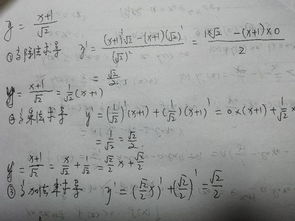 y = (x+1)/√2
①当除法求导 y' = ((x+1)'√2 - (x+1)(√2)')/(√2)² = (1×√2 - (x+1)×0)/2
= √2/2
y = (x+1)/√2 = 1/√2 (x+1)
②当乘法求导 y' = (1/√2)'(x+1) + (1/√2)(x+1)' = 0×(x+1) + 1/√2 ×
= 1/√2 = √2/2
y = (x+1)/√2 = x/√2 + 1/√2 = √2/2 x + √2/2
③当加法求导 y' = (√2/2 x)' + (√2/2)' = √2/2